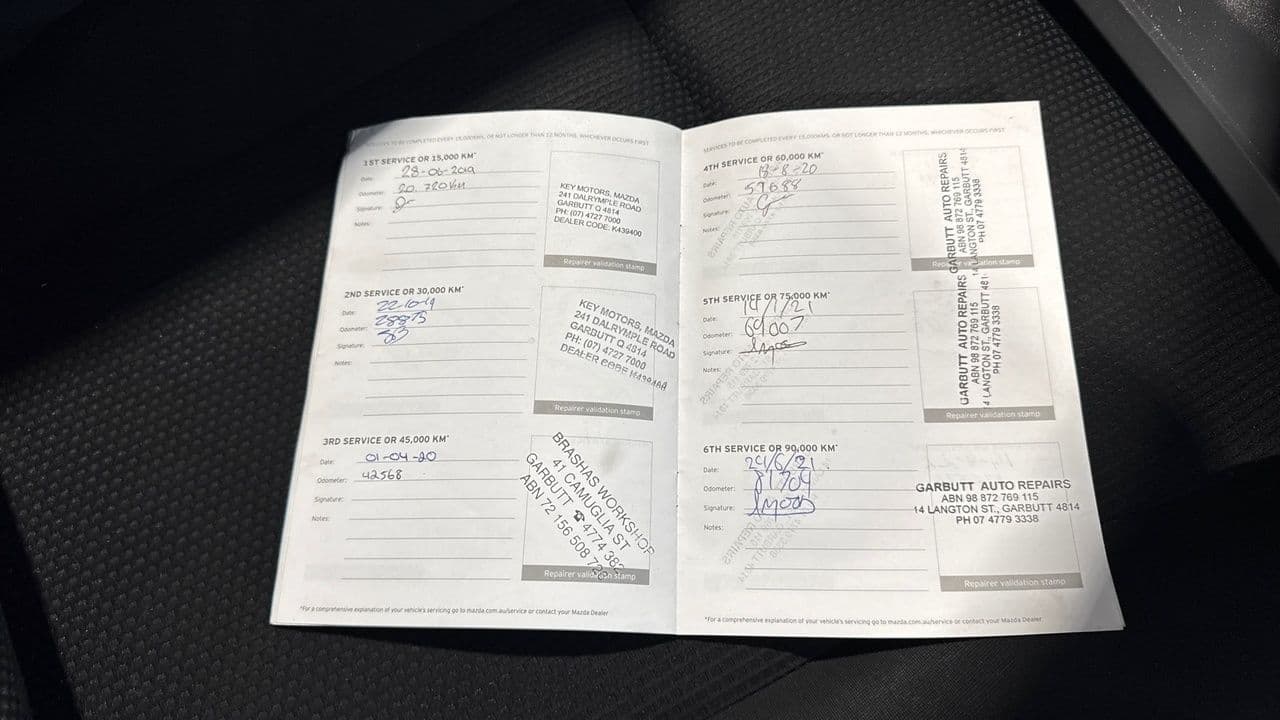 SERVICES TO BE COMPLETED EVERY 15,000KMS, OR NOT LONGER THAN 12 MONTHS, WHICHEVER OCCURS FIRST
1ST SERVICE OR 15,000 KM*
Date: 28-06-2019
Odometer: 20.780 km
Signature:
Notes:
KEY MOTORS, MAZDA
241 DALRYMPLE ROAD
GARBUTT Q 4814
PH: (07) 4727 7000
DEALER CODE: K439400
Repairer validation stamp
2ND SERVICE OR 30,000 KM*
Date: 22-10-19
Odometer: 28875
Signature:
Notes:
KEY MOTORS, MAZDA
241 DALRYMPLE ROAD
GARBUTT Q 4814
PH: (07) 4727 7000
DEALER CODE K439400
Repairer validation stamp
3RD SERVICE OR 45,000 KM*
Date: 01-04-20
Odometer: 42568
Signature:
Notes:
BRASHAS WORKSHOP
41 CAMUGLIA ST
GARBUTT ☎ 4774 382
ABN 72 156 508
Repairer validation stamp
*For a comprehensive explanation of your vehicle's servicing go to mazda.com.au/service or contact your Mazda Dealer
SERVICES TO BE COMPLETED EVERY 15,000KMS, OR NOT LONGER THAN 12 MONTHS, WHICHEVER OCCURS FIRST
4TH SERVICE OR 60,000 KM*
Date: 18-8-20
Odometer: 57688
Signature:
Notes:
GARBUTT AUTO REPAIRS
ABN 98 872 769 115
14 LANGTON ST., GARBUTT 4814
PH 07 4779 3338
Repairer validation stamp
5TH SERVICE OR 75,000 KM*
Date: 14/1/21
Odometer: 69007
Signature:
Notes:
GARBUTT AUTO REPAIRS
ABN 98 872 769 115
14 LANGTON ST., GARBUTT 481
PH 07 4779 3338
Repairer validation stamp
6TH SERVICE OR 90,000 KM*
Date: 24/6/21
Odometer: 81704
Signature:
Notes:
GARBUTT AUTO REPAIRS
ABN 98 872 769 115
14 LANGTON ST., GARBUTT 4814
PH 07 4779 3338
Repairer validation stamp
*For a comprehensive explanation of your vehicle's servicing go to mazda.com.au/service or contact your Mazda Dealer